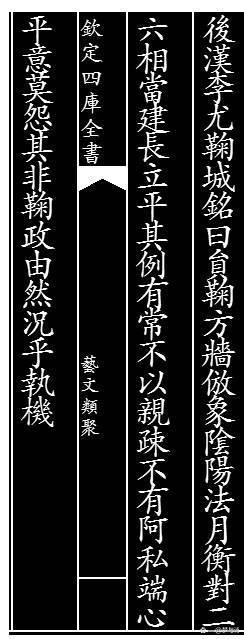 後漢李尤鞠城銘曰員鞠方牆倣象隂陽法月衡對二
六相當建長立平其例有常不以親疎不有阿私端心
欽定四庫全書
藝文類聚
平意莫怨其非鞠政由然況乎執機